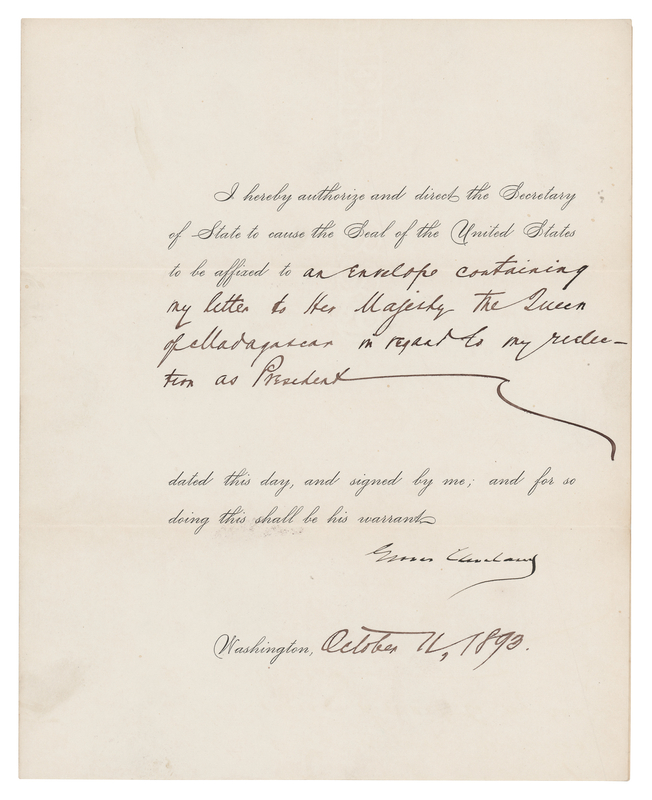 I hereby authorize and direct the Secretary
of State to cause the Seal of the United States
to be affixed to an envelope containing
my letter to Her Majesty the Queen
of Madagascar in regard to my reelec-
tion as President
dated this day, and signed by me; and for so
doing this shall be his warrant
Grover Cleveland
Washington, October 11, 1893.